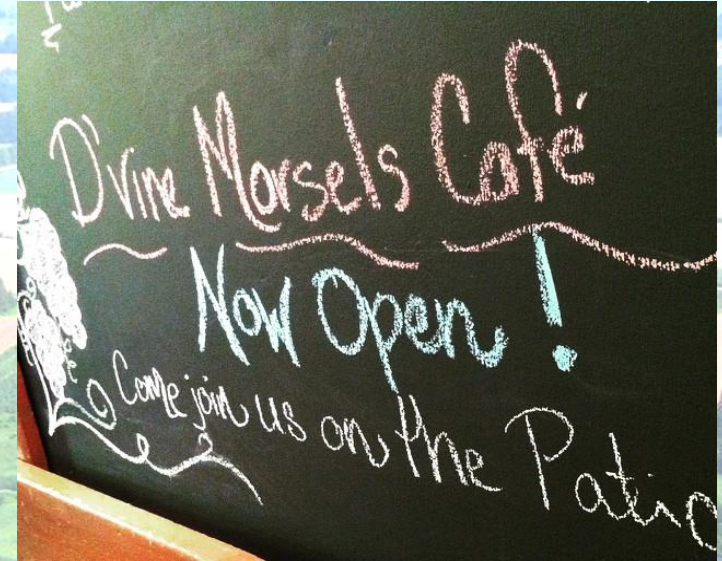 D'Vine Morsels Café
Now Open!
Come join us on the Patio